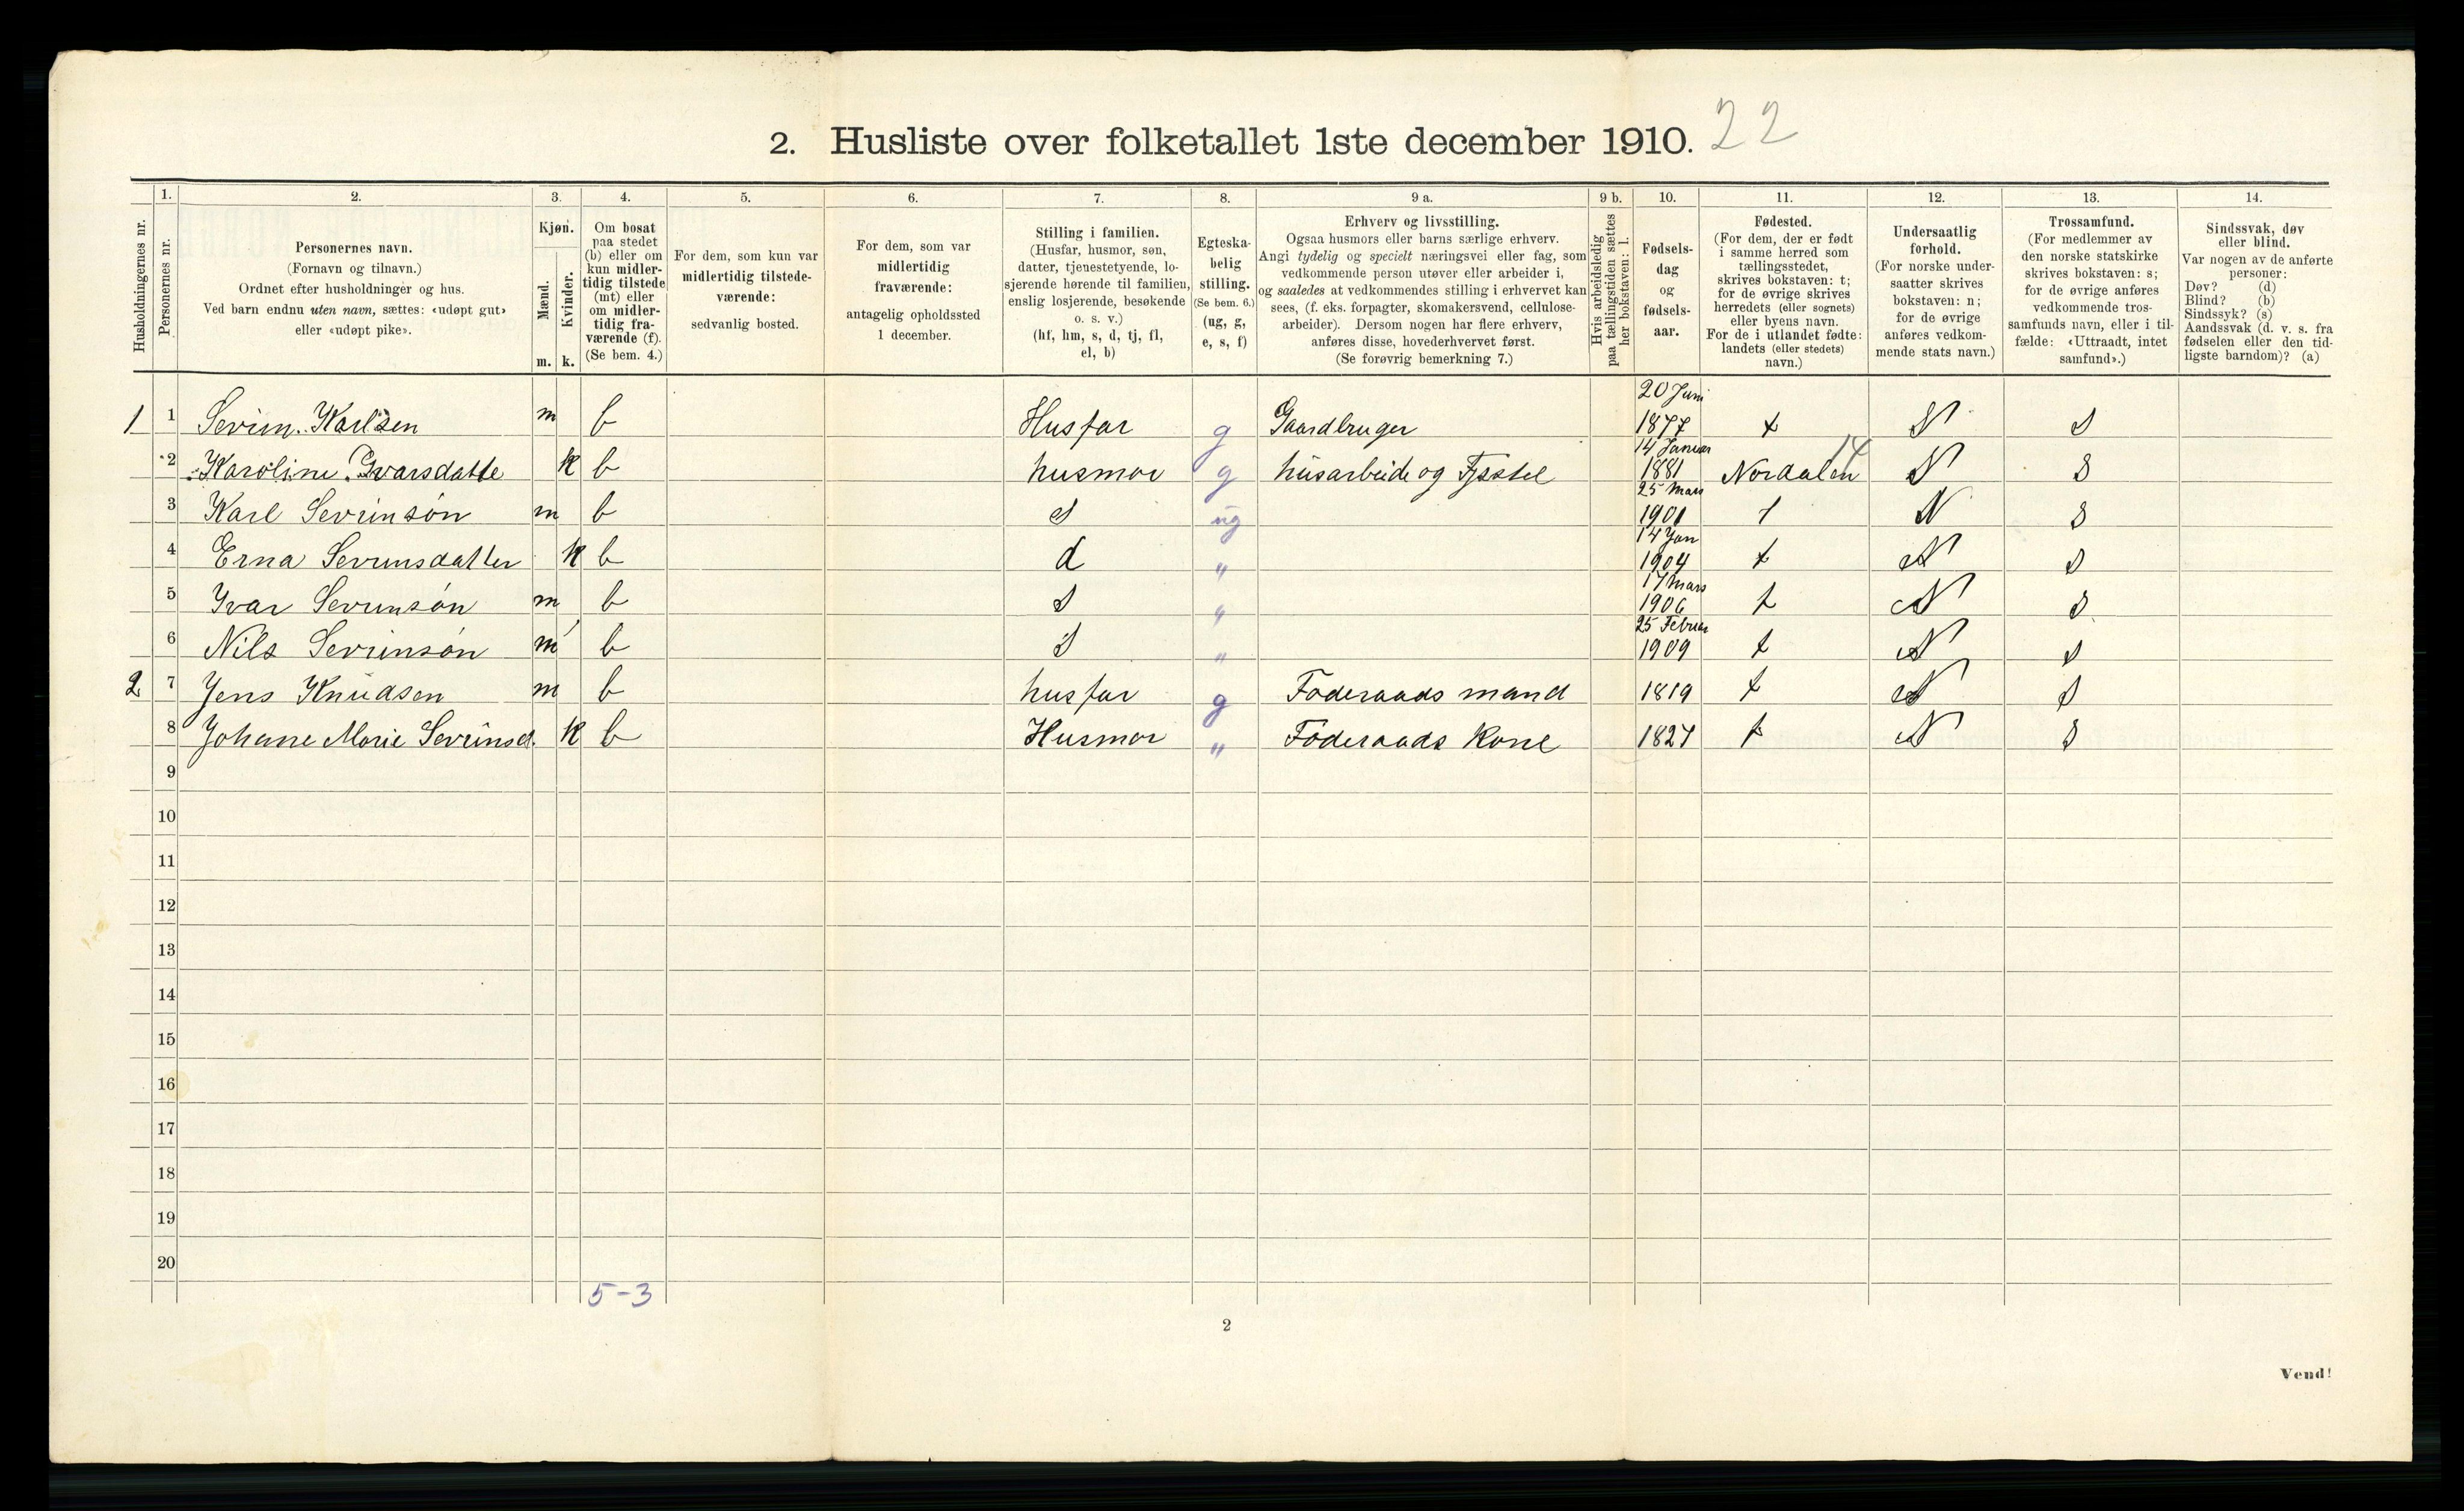 2. Husliste over folketallet 1ste december 1910. 22
Husholdningernes nr.
1. Personernes nr.
2. Personernes navn.
(Fornavn og tilnavn.)
Ordnet efter husholdninger og hus.
Ved barn endnu uten navn, sættes: «udøpt gut»
eller «udøpt pike».
3. Kjøn.
Mænd. m.
Kvinder. k.
4. Om bosat
paa stedet
(b) eller om
kun midler-
tidig tilstede
(mt) eller
om midler-
tidig fra-
værende (f).
(Se bem. 4.)
5. For dem, som kun var
midlertidig tilstede-
værende:
sedvanlig bosted.
6. For dem, som var
midlertidig
fraværende:
antagelig opholdssted
1 december.
7. Stilling i familien.
(Husfar, husmor, søn,
datter, tjenestetyende, lo-
sjerende hørende til familien,
enslig losjerende, besøkende
o. s. v.)
(hf, hm, s, d, tj, fl,
el, b)
8. Egteska-
belig
stilling.
(Se bem. 6.)
(ug, g,
e, s, f)
9 a. Erhverv og livsstilling.
Ogsaa husmors eller barns særlige erhverv.
Angi tydelig og specielt næringsvei eller fag, som
vedkommende person utøver eller arbeider i,
og saaledes at vedkommendes stilling i erhvervet kan
sees, (f. eks. forpagter, skomakersvend, cellulose-
arbeider). Dersom nogen har flere erhverv,
anføres disse, hovederhvervet først.
(Se forøvrig bemerkning 7.)
9 b. Hvis arbeidsledig
paa tællingstiden sættes
her bokstaven: l.
10. Fødsels-
dag
og
fødsels-
aar.
11. Fødested.
(For dem, der er født
i samme herred som
tællingsstedet,
skrives bokstaven: t;
for de øvrige skrives
herredets (eller sognets)
eller byens navn.
For de i utlandet fødte:
landets (eller stedets)
navn.)
12. Undersaatlig
forhold.
(For norske under-
saatter skrives
bokstaven: n;
for de øvrige
anføres vedkom-
mende stats navn.)
13. Trossamfund.
(For medlemmer av
den norske statskirke
skrives bokstaven: s;
for de øvrige anføres
vedkommende tros-
samfunds navn, eller i til-
fælde: «Uttraadt, intet
samfund».)
14. Sindssvak, døv
eller blind.
Var nogen av de anførte
personer:
Døv? (d)
Blind? (b)
Sindssyk? (s)
Aandssvak (d. v. s. fra
fødselen eller den tid-
ligste barndom)? (a)
1 1 Sevrin. Karlsen m b Husfar g Gaardbruger 20 Juni 1877 t N S
2 Karoline Ivarsdatte k b husmor g husarbeide og Fjsstel 14 Januar 1881 Nordalen 14 N S
3 Karl Sevrinsøn m b S ug 25 Mars 1901 t N S
4 Erna Sevrinsdatter k b d " 14 Jan 1904 t N S
5 Ivar Sevrinsøn m b S " 17 Mars 1906 t N S
6 Nils Sevrinsøn m b S " 25 Februar 1909 t N S
2 7 Jens Knudsen m b husfar g Føderaads mand 1819 t N S
8 Johane Marie Sevrinsd. k b Husmor " Føderaads Kone 1827 t N S
9
10
11
12
13
14
15
16
17
18
19
20
5-3
2
Vend!